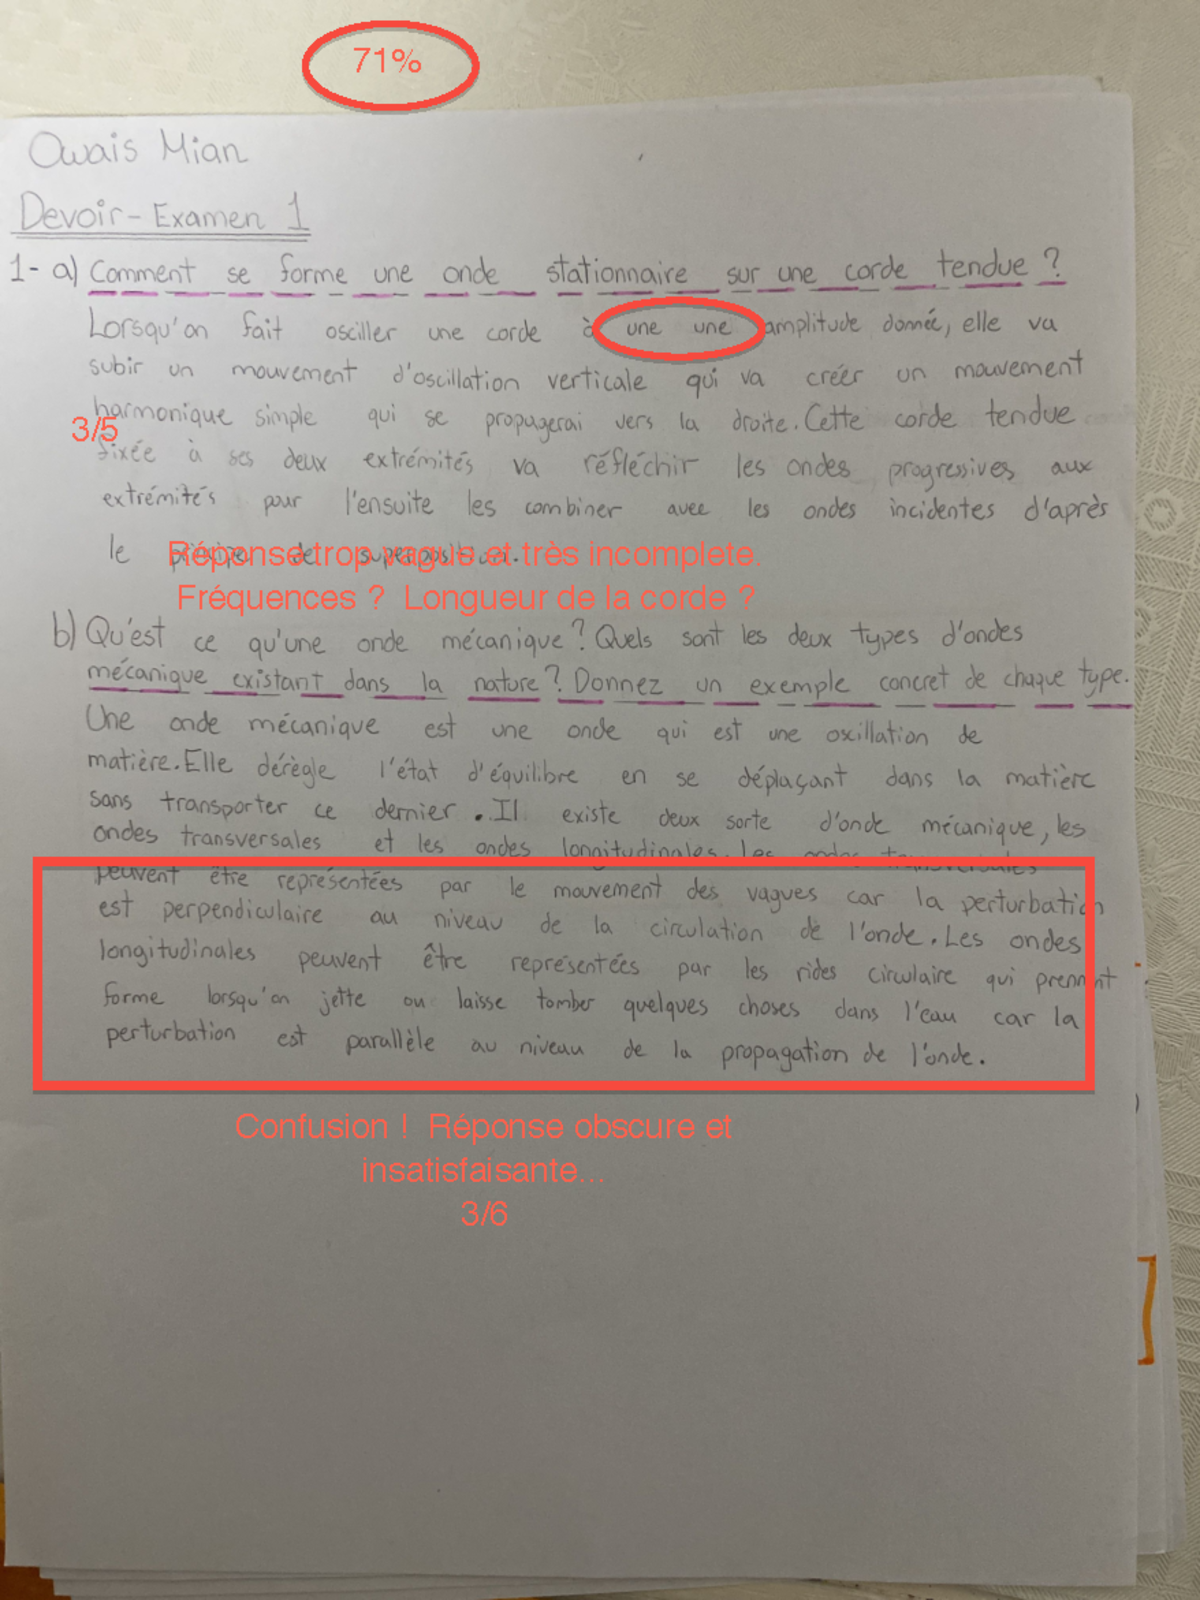 71%
Owais Mian
Devoir-Examen 1
1- a) Comment se forme une onde stationnaire sur une corde tendue ?
Lorsqu'on fait osciller une corde à une une amplitude donnée, elle va
subir un mouvement d'oscillation verticale qui va créer un mouvement
harmonique simple qui se propagerai vers la droite. Cette corde tendue
3/5
fixée à ses deux extrémités va réfléchir les ondes progressives aux
extrémités pour l'ensuite les combiner avec les ondes incidentes d'après
le principe de superposition.
Réponse trop vague et très incomplete.
Fréquences ? Longueur de la corde ?
b) Qu'est ce qu'une onde mécanique ? Quels sont les deux types d'ondes
mécanique existant dans la nature ? Donnez un exemple concret de chaque type.
Une onde mécanique est une onde qui est une oxillation de
matière. Elle dérègle l'état d'équilibre en se déplaçant dans la matière
sans transporter ce dernier. Il existe deux sorte d'onde mécanique, les
ondes transversales et les ondes longitudinales. Les ondes transversales
peuvent être représentées par le mouvement des vagues car la perturbation
est perpendiculaire au niveau de la circulation de l'onde. Les ondes
longitudinales peuvent être représentées par les rides circulaire qui prennent
forme lorsqu'on jette ou laisse tomber quelques choses dans l'eau car la
perturbation est parallèle au niveau de la propagation de l'onde.
Confusion ! Réponse obscure et
insatisfaisante...
3/6